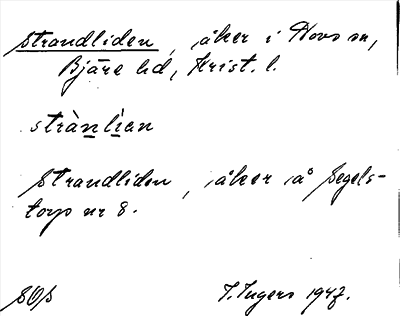 Strandliden, åker i Hovs sn,
Bjäre hd, Krist. l.
strànlìan
Strandliden, åker på Segels-
torp nr 8.
SOS
I. Ingers 1947.